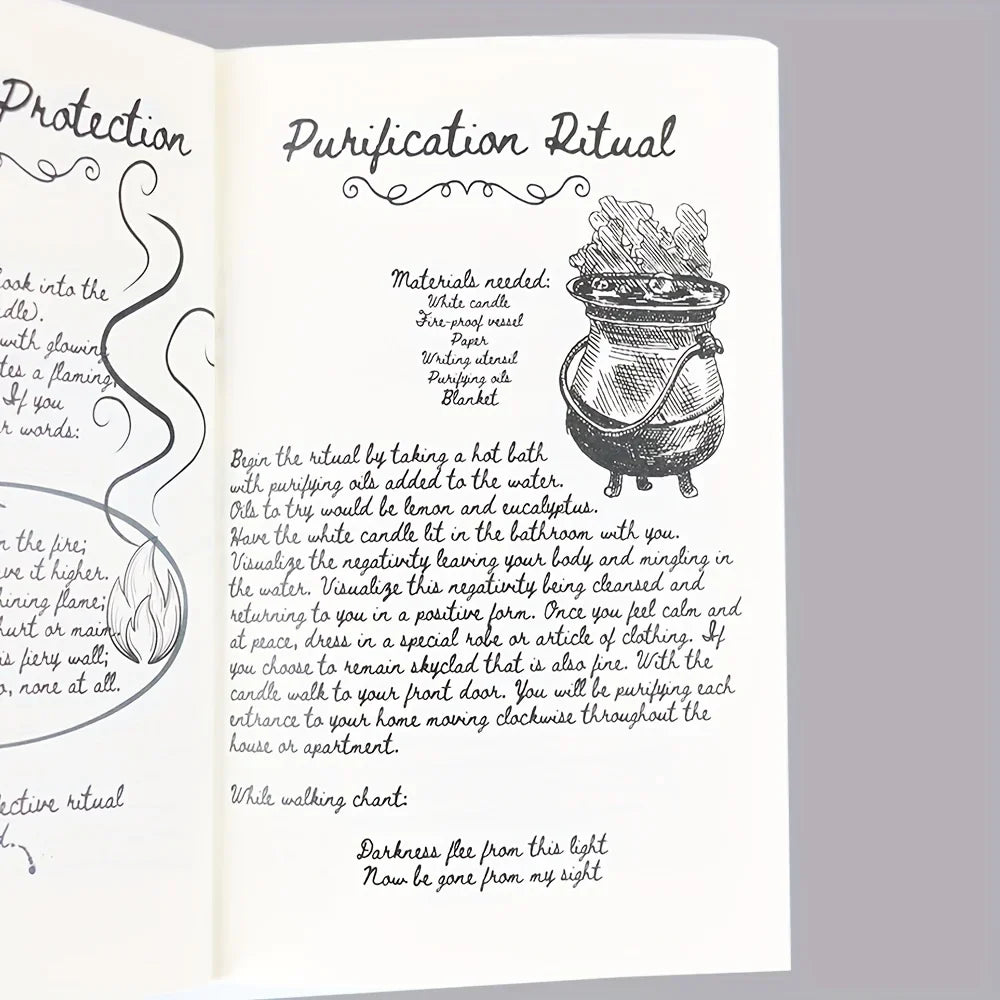 Protection
look into the
dle).
with glowing
tes a flaming
If you
r words:
n the fire;
ve it higher.
hining flame;
hurt or maim.
is fiery wall;
o, none at all.
ective ritual
d.
Purification Ritual
Materials needed:
White candle
Fire-proof vessel
Paper
Writing utensil
Purifying oils
Blanket
Begin the ritual by taking a hot bath
with purifying oils added to the water.
Oils to try would be lemon and eucalyptus.
Have the white candle lit in the bathroom with you.
Visualize the negativity leaving your body and mingling in
the water. Visualize this negativity being cleansed and
returning to you in a positive form. Once you feel calm and
at peace, dress in a special robe or article of clothing. If
you choose to remain skyclad that is also fine. With the
candle walk to your front door. You will be purifying each
entrance to your home moving clockwise throughout the
house or apartment.
While walking chant:
Darkness flee from this light
Now be gone from my sight